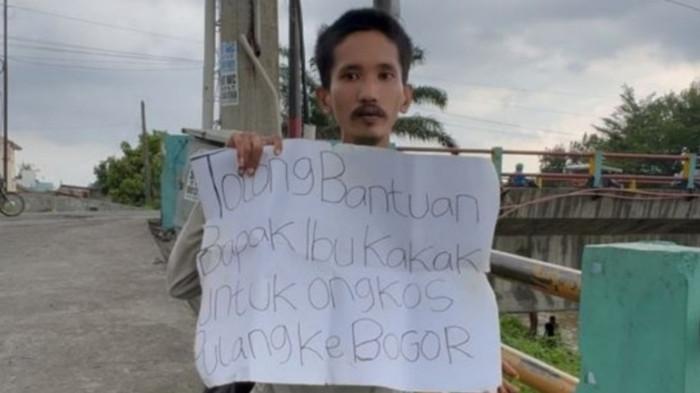 Tolong Bantuan
Bapak Ibu Kakak
untuk ongkos
Pulang Ke BOGOR